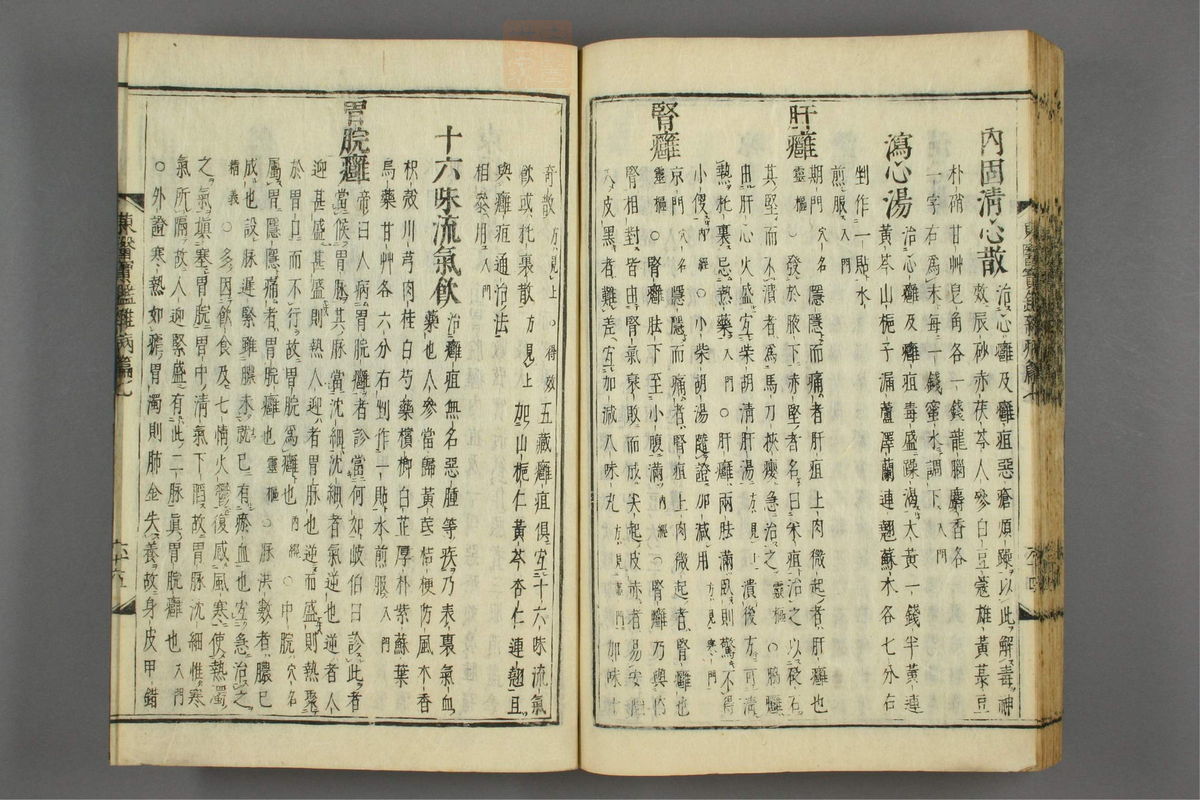 內固清心散 治心癰及癰疽惡瘡煩躁以此解毒神
效辰砂赤茯苓人參白豆蔻雄黃菉豆
朴硝甘艸皂角各一錢龍腦麝香各
一字右爲末每一錢蜜水調下入門
瀉心湯 治心癰及癰疽毒盛躁渴大黃一錢半黃連
黃芩山梔子漏蘆澤蘭連翹蘇木各七分右
剉作一貼水
煎服入門
肝癰 期門穴名隱隱而痛者肝疽上肉微起者肝癰也
靈樞○發於腋下赤堅者名曰米疽治之以砭石
其堅而不潰者爲馬刀挾癭急治之靈樞○脇癰
由肝心火盛宜柴胡清肝湯方見上潰後方可清
熱托裏忌熱藥入門○肝癰兩胠滿臥則驚不得
小便內經○小柴胡湯隨證加減用方見寒門
腎癰 京門穴名隱隱而痛者腎疽上肉微起者腎癰也
靈樞○腎癰胠下至小腹滿內經○腎癰乃與內
腎相對皆由腎氣衰敗而成尖起皮赤者易安陷
入皮黑者難差宜加減八味丸方見門加味十
奇散方見上○得效五藏癰疽俱宜十六味流氣
飮或托裏散方見上加山梔仁黃芩杏仁連翹且
與癰疽通治法
相參用入門
十六味流氣飮 治癰疽無名惡腫等疾乃表裏氣血
藥也人參當歸黃芪桔梗防風木香
枳殼川芎肉桂白芍藥檳榔白芷厚朴紫蘇葉
烏藥甘艸各六分右剉作一貼水煎服入門
胃脘癰 帝曰人病胃脘癰者診當何如岐伯曰診此者
當候胃脈其脈當沈細沈細者氣逆也逆者人
迎甚盛甚盛則熱人迎者胃脈也逆而盛則熱聚
於胃口而不行故胃脘爲癰也內經○中脘穴名
屬胃隱隱痛者胃脘癰也靈樞○脈洪數者膿已
成也設脈遲緊雖膿未就已有瘀血也宜急治之
精義○多因飮食及七情火鬱復感風寒使熱濁
之氣塡塞胃脘胃中清氣下陷故胃脈沈細惟寒
氣所隔故人迎緊盛有此二脈眞胃脘癰也入門
○外證寒熱如瘧胃濁則肺金失養故身皮甲錯
東醫寶鑑雜病篇七